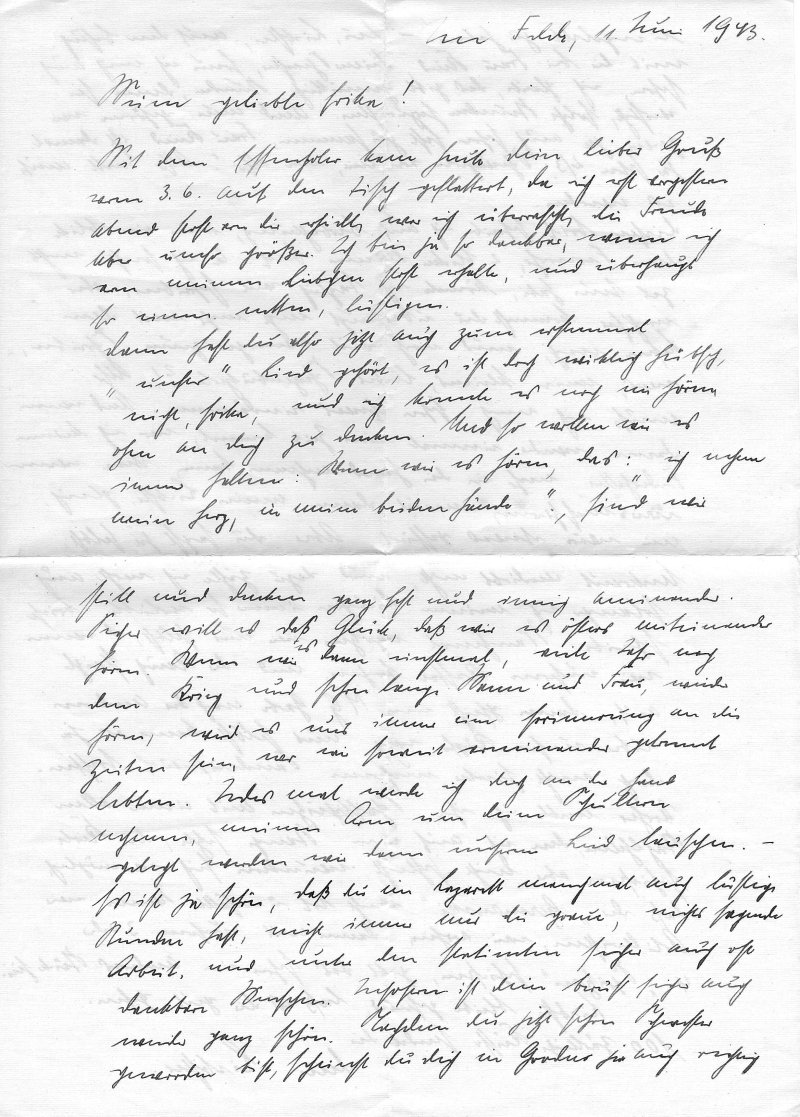 Im Felde, 11. Juni 1943.
Meine geliebte Erika!
Mit dem Essenholer kam heute dein lieber Gruß
vom 3.6. auf den Tisch geflattert, da ich erst vorgestern
Abend Post von dir erhielt, war ich überrascht, die Freude
aber umso größer. Ich bin ja so dankbar, wenn ich
von meinem Liebchen Post erhalte, und überhaupt
so einen netten, lustigen.
Dann hast du also jetzt auch zum erstenmal
"unser" Lied gehört, es ist doch wirklich hübsch,
nicht, Erika, und ich konnte es noch nie hören
ohne an dich zu denken. Und so wollen wir es
immer halten: Wenn wir es hören, das: "ich nehme
mein Herz, in meine beiden Hände", sind wir
still und denken ganz fest und innig aneinander.
Sicher will es das Glück, daß wir es öfters miteinander
hören. Wenn wir es dann einstmal, viele Jahre nach
dem Krieg und schon lange Mann und Frau, wieder
hören, wird es uns immer eine Erinnerung an die
Zeiten sein, wo wir soweit voneinander getrennt
lebten. Jedes mal werde ich dich an der Hand
nehmen, meinen Arm um deine Schultern
gelegt werden wir dann unserem Lied lauschen. –
Es ist ja schön, daß du im Lazarett manchmal auch lustige
Stunden hast, nicht immer nur die graue, nichts sagende
Arbeit, und unter den Patienten sicher auch oft
dankbare Menschen. Insofern ist dein Beruf sicher auch
wieder ganz schön. Nachdem du jetzt schon Schwester
geworden bist, scheinst du dich in Grodno ja auch richtig